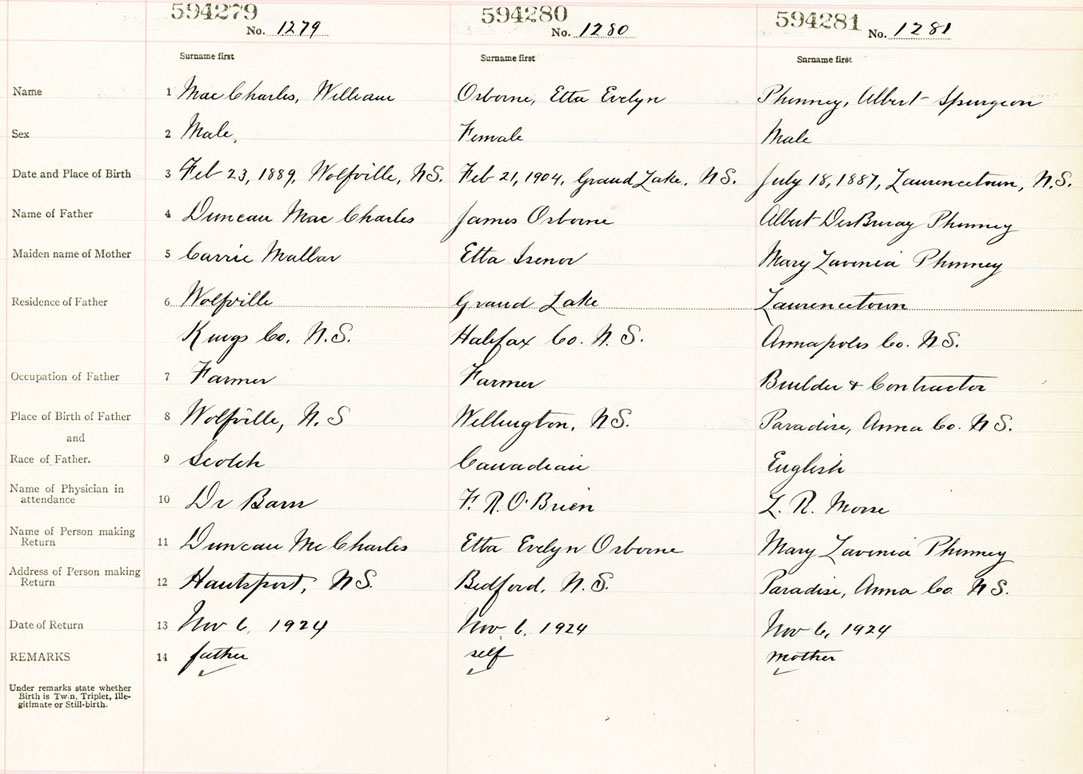 594279 594280 594281
No. 1279 No. 1280 No. 1281
Surname first Surname first Surname first
Name 1 Mac Charles, William Osborne, Etta Evelyn Phinney, Albert Spurgeon
Sex 2 Male, Female Male
Date and Place of Birth 3 Feb 23, 1889, Wolfville, N.S. Feb 21, 1904, Grand Lake, N.S. July 18, 1887, Lawrencetown, N.S.
Name of Father 4 Duncan Mac Charles James Osborne Albert DesBrisay Phinney
Maiden name of Mother 5 Carrie Etta Isenor Mary Lavenia Phinney
Residence of Father 6 Wolfville Grand Lake Lawrencetown
Kings Co. N.S. Halifax Co. N.S. Annapolis Co. N.S.
Occupation of Father 7 Farmer Farmer Builder & Contractor
Place of Birth of Father 8 Wolfville, N.S Wellington, N.S. Paradise, Anna Co. N.S.
and
Race of Father. 9 Scotch Canadian English
Name of Physician in 10 Dr F. R. O'Brien L. R. Morse
attendance
Name of Person making 11 Duncan Mc Charles Etta Evelyn Osborne Mary Lavenia Phinney
Return
Address of Person making 12 Hantsport, N.S. Bedford, N.S. Paradise, Anna Co. N.S.
Return
Date of Return 13 Nov 6, 1924 Nov. 6, 1924 Nov 6, 1924
REMARKS 14 father self mother
Under remarks state whether
Birth is Twin, Triplet, Ille-
gitimate or Still-birth.